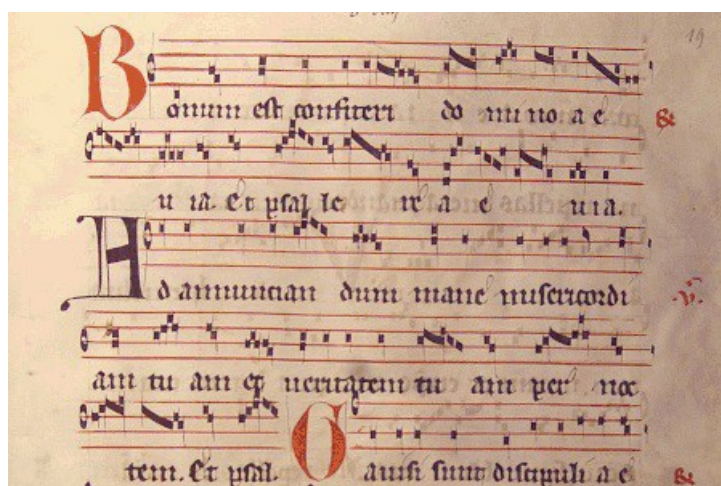 19
Bonum est confiteri do mi no a e
u ia. Et psal le re a e u ia.
Ad annuncian dum mane misericordi
am tu am et ueritatem tu am per noc
tem. Et psal. Gauisi sunt discipuli a e